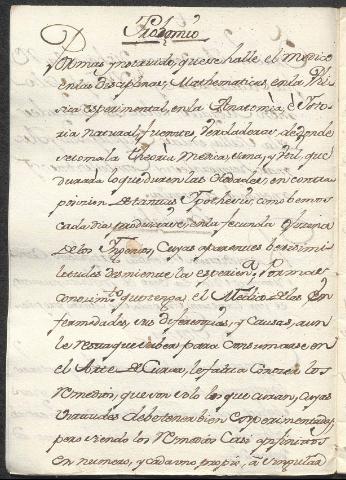 Prologuio
Por mas instruido, que se halle el Medico
en las disciplinas, Mathematicas, en la Phi
sica experimental, en la Anatomia, è Isto
ria natural, fuentes, verdaderas de donde
se toma la theoria Medica, sana, y util, que
durarà lo que duren las Edades, en contra
posicion de tantas Ipothesis, como bemos
cada dia producirse, en la fecunda ofizina
de los Ingenios, cuyas aparentes berisimi
litudes desmiente la esperiencia, Por mas
conocimto que tenga el Medico de las en
fermedades, sus diferencias, y causas, aun
le resta que saber para consumarse en
el Arte de Curar, le falta conocer los
remedios, que son solo los que curan, cuyas
virtudes debe tener bien experimentadas,
pero siendo los remedios casi infinitos
en numero, y cada uno propio, à singular